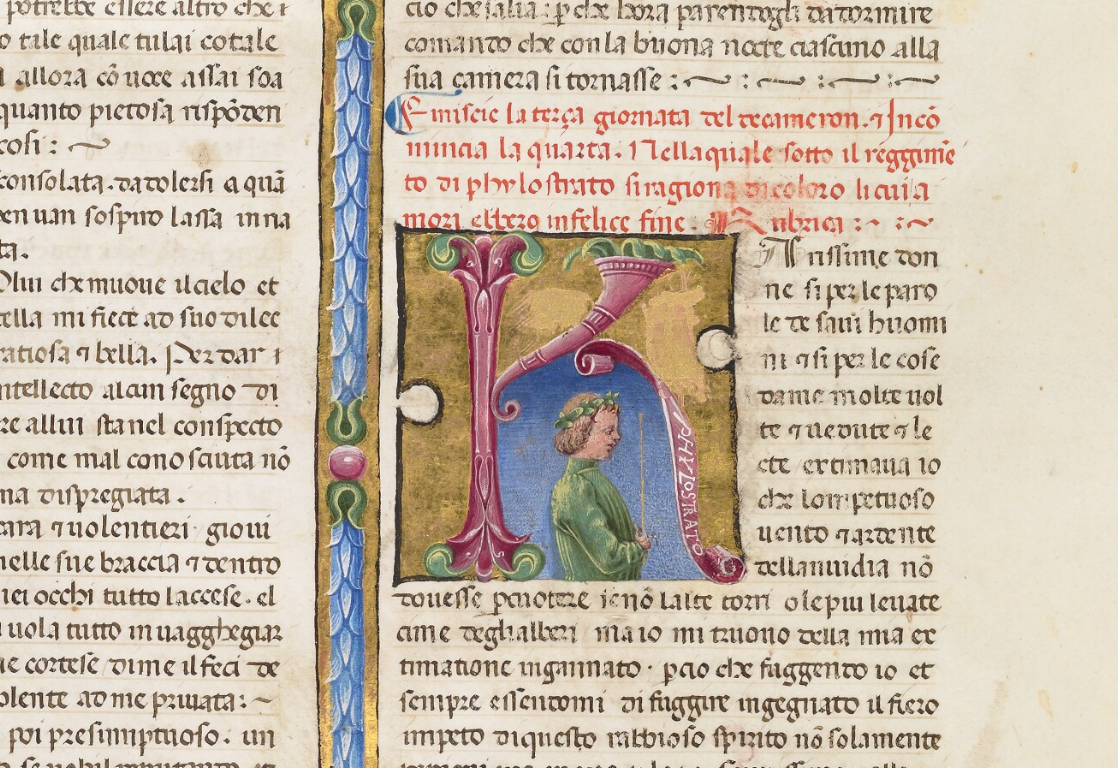 potrebbe essere altro che i
o tale quale tu lai cotale
allora cō uoce assai soa
quanto pietosa rispōden
cosi :
consolata. da dolersi a quā
en uan sospiro lassa inna
ta.
olui che muoue il cielo et
ella mi fiece ad suo dilec
ratiosa ⁊ bella. Per dar i
ntellecto alcun segno di
re allui sta nel conspecto
come mal conosciuta nō
na dispregiata.
cara ⁊ uolentieri giouí
nelle sue braccia ⁊ dentro
iei occhi tutto laccese. el
uola tutto in uaggheg​iar
e cortese di me il feci de
olente ad me priuata:
poi presumptuoso. un
cio che salia : ꝑ che hora parendogli da dormire
comando che con la buona nocte ciascuno alla
sua camera si tornasse :
Finiscie la terça giornata del decameron. ⁊ Incō
mincia la quarta. Nella quale sotto il reggimē
to di phylostrato si ragiona di coloro li cui a
mori ebbero infelice fine. Rubrica :
Arissime don
ne si per le paro
le de saui huomi
ni ⁊ si per le cose
da me molte uol
te ⁊ uedute ⁊ le
cte extimaua io
che lompetuoso
uento ⁊ ardente
della nuidia nō
PHYLOSTRATO
douesse ꝑcuotere se nō lalte torri o le piu leuate
cime degli alberi ma io mi truouo della mia ex
timatione ingannato. ꝑcio che fuggendo io et
sempre essendomi di fuggire ingegnato il fiero
impeto di questo rabbioso spirito nō solamente